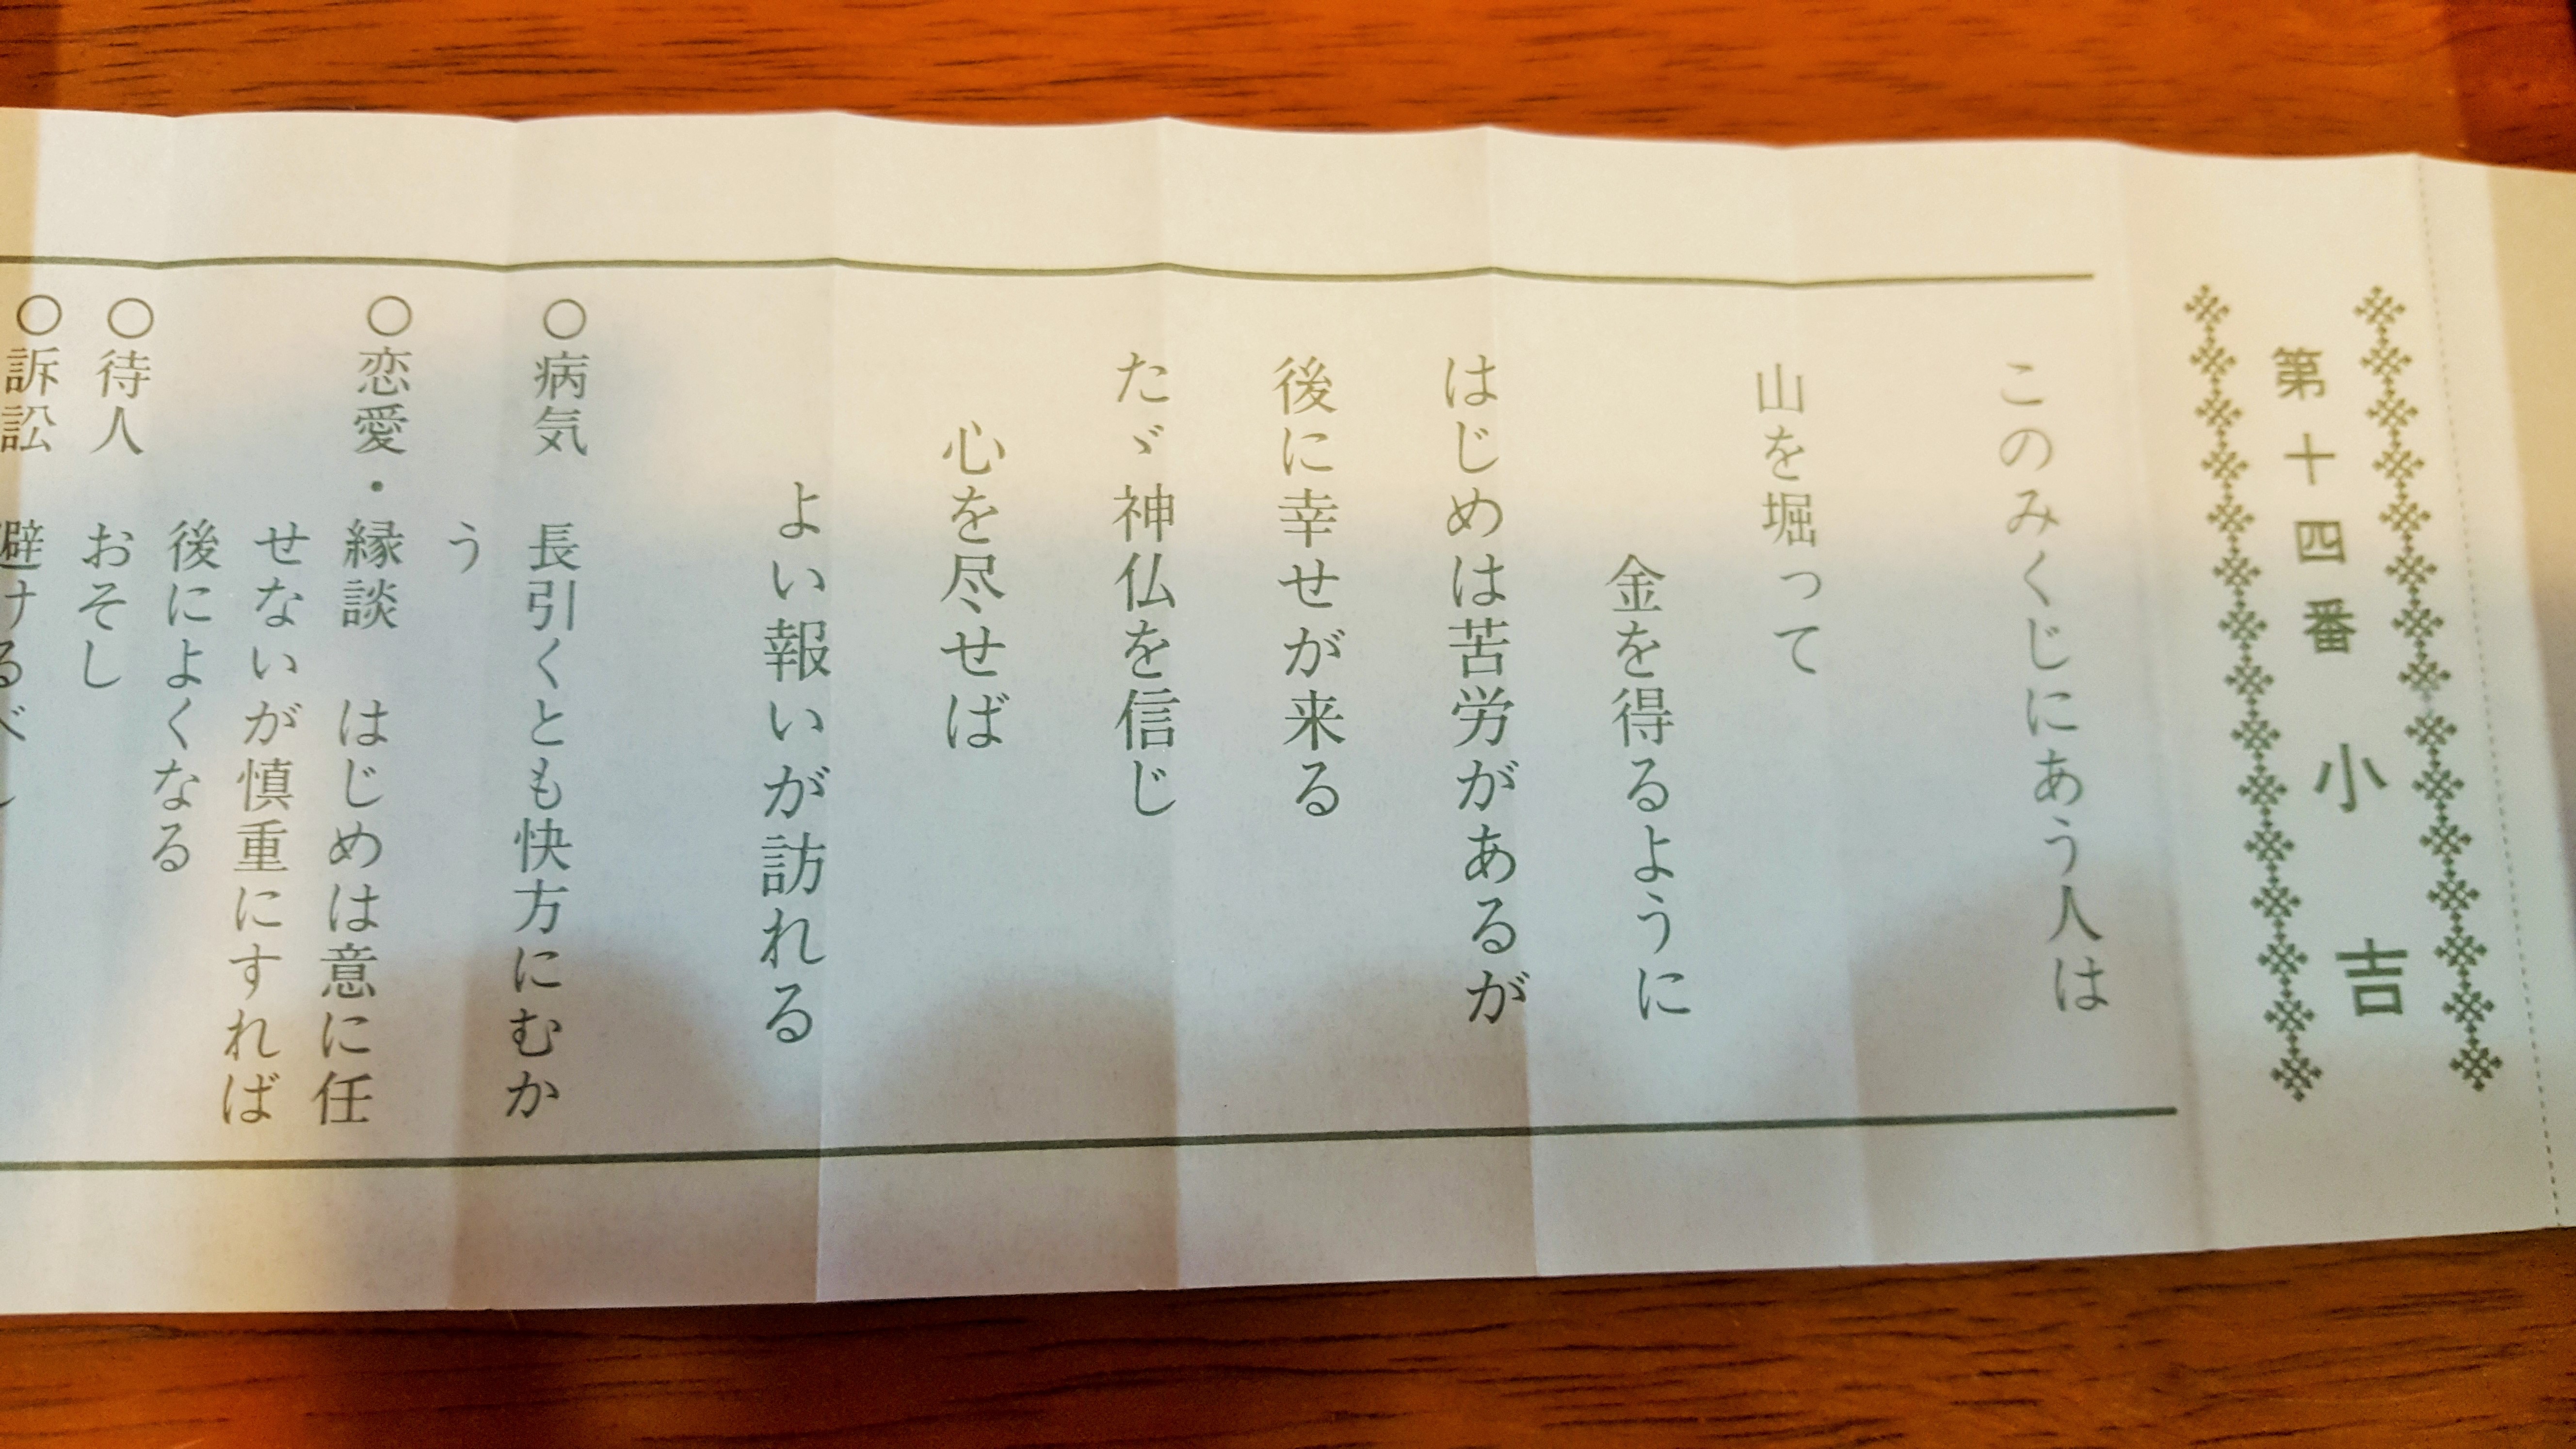 第十四番 小吉
このみくじにあう人は
山を堀って
金を得るように
はじめは苦労があるが
後に幸せが来る
たゞ神仏を信じ
心を尽せば
よい報いが訪れる
○病気 長引くとも快方にむか
う
○恋愛・縁談 はじめは意に任
せないが慎重にすれば
後によくなる
○待人 おそし
○訴訟 避けるべし